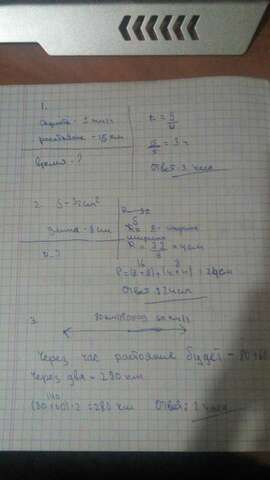 1.
скорость - 5 км/ч
расстояние - 15 км
время - ?
t = S/υ
15/5 = 3 ч
Ответ: 3 часа
2. S - 32 см²
Длина - 8 см
P - ?
= 32/8 = 4 см
P = (8+8)+(4+4) = 24 см
Ответ: 24 см
3.
80 км/ч город 60 км/ч
Через час растояние будет - 80+60
Через два - 280 км
140
(80+60)·2 = 280 км
Ответ: 2 часа